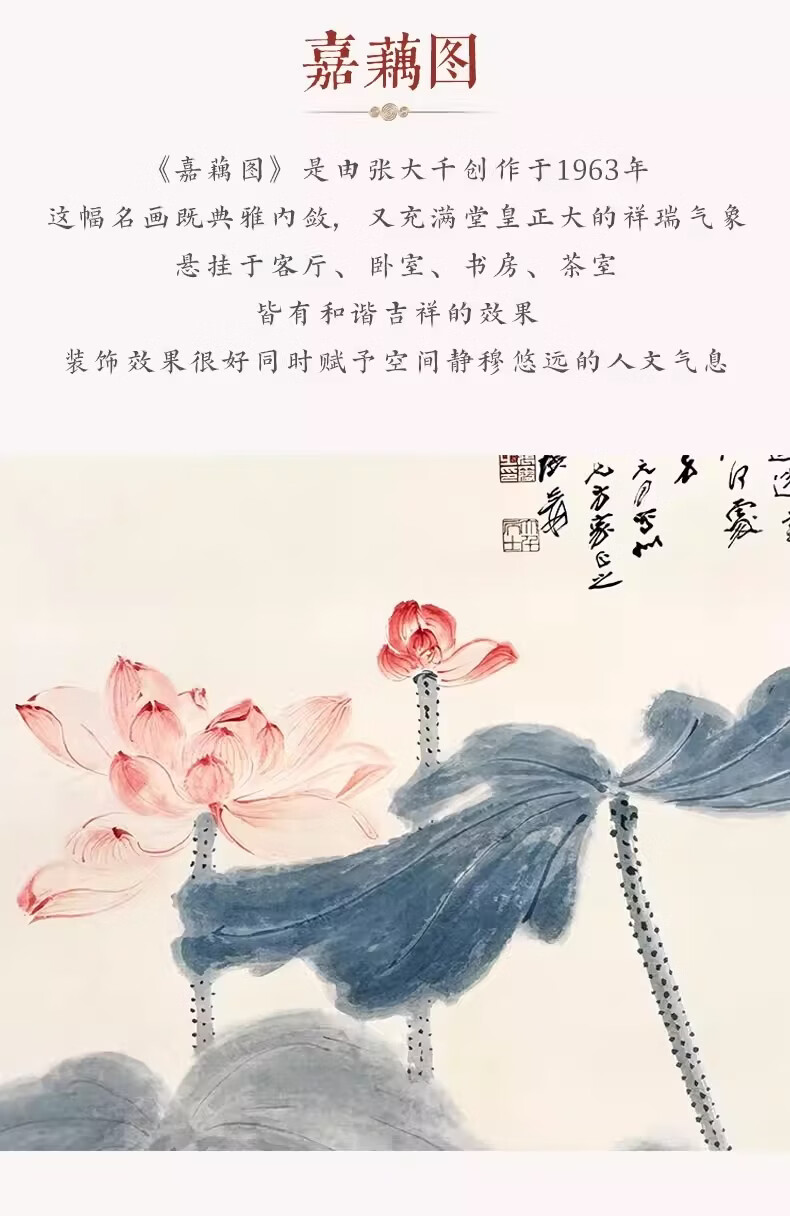 嘉藕图
《嘉藕图》是由张大千创作于1963年
这幅名画既典雅内敛，又充满堂皇正大的祥瑞气象
悬挂于客厅、卧室、书房、茶室
皆有和谐吉祥的效果
装饰效果很好同时赋予空间静穆悠远的人文气息